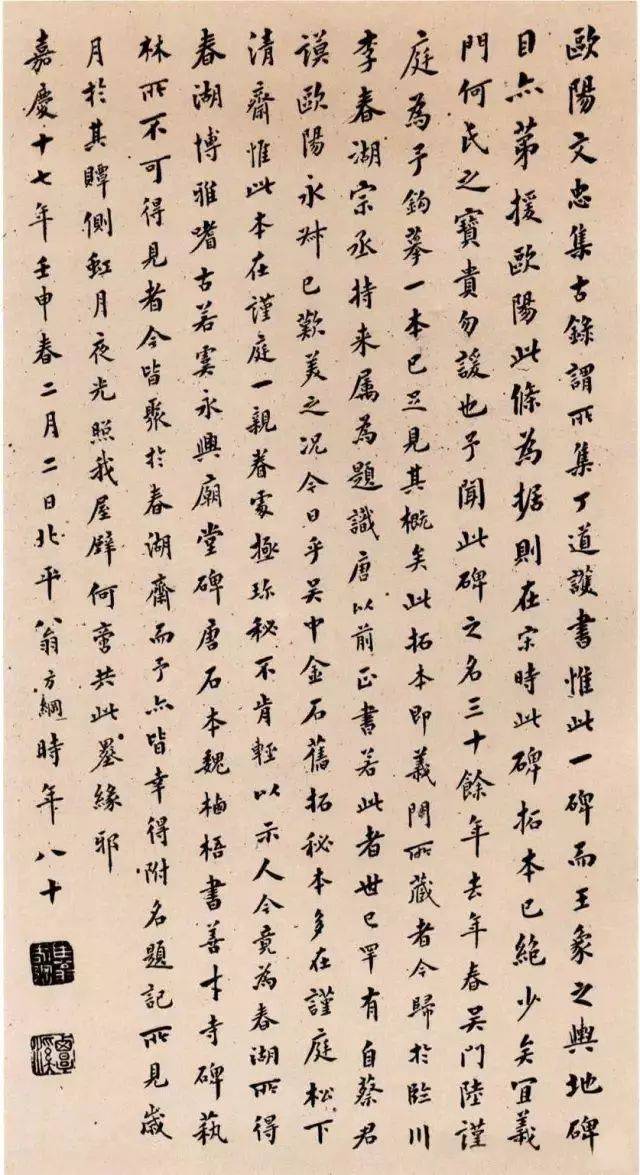 歐陽文忠集古錄謂所集丁道護書惟此一碑而王象之輿地碑
目亦第援歐陽此條為据則在宋時此碑拓本已絶少矣宜義
門何氏之寶貴勿諼也予聞此碑之名三十餘年去年春吴門陸謹
庭為予鈎摹一本已足見其概矣此拓本即義門所藏者今歸於臨川
李春湖宗丞持来属為題識唐以前正書若此者世已罕有自蔡君
謨歐陽永叔已歎美之况今日乎吴中金石舊拓秘本多在謹庭松下
清齋惟此本在謹庭一親眷處極珎秘不肯輕以示人今竟為春湖所得
春湖博雅嗜古若虞永興廟堂碑唐石本魏栖梧書善才寺碑蓺
林所不可得見者今皆聚於春湖齋而予亦皆幸得附名題記所見嵗
月於其贉側虹月夜光照我屋壁何啻共此墨緣耶
嘉慶十七年壬申春二月二日北平翁方綱時年八十